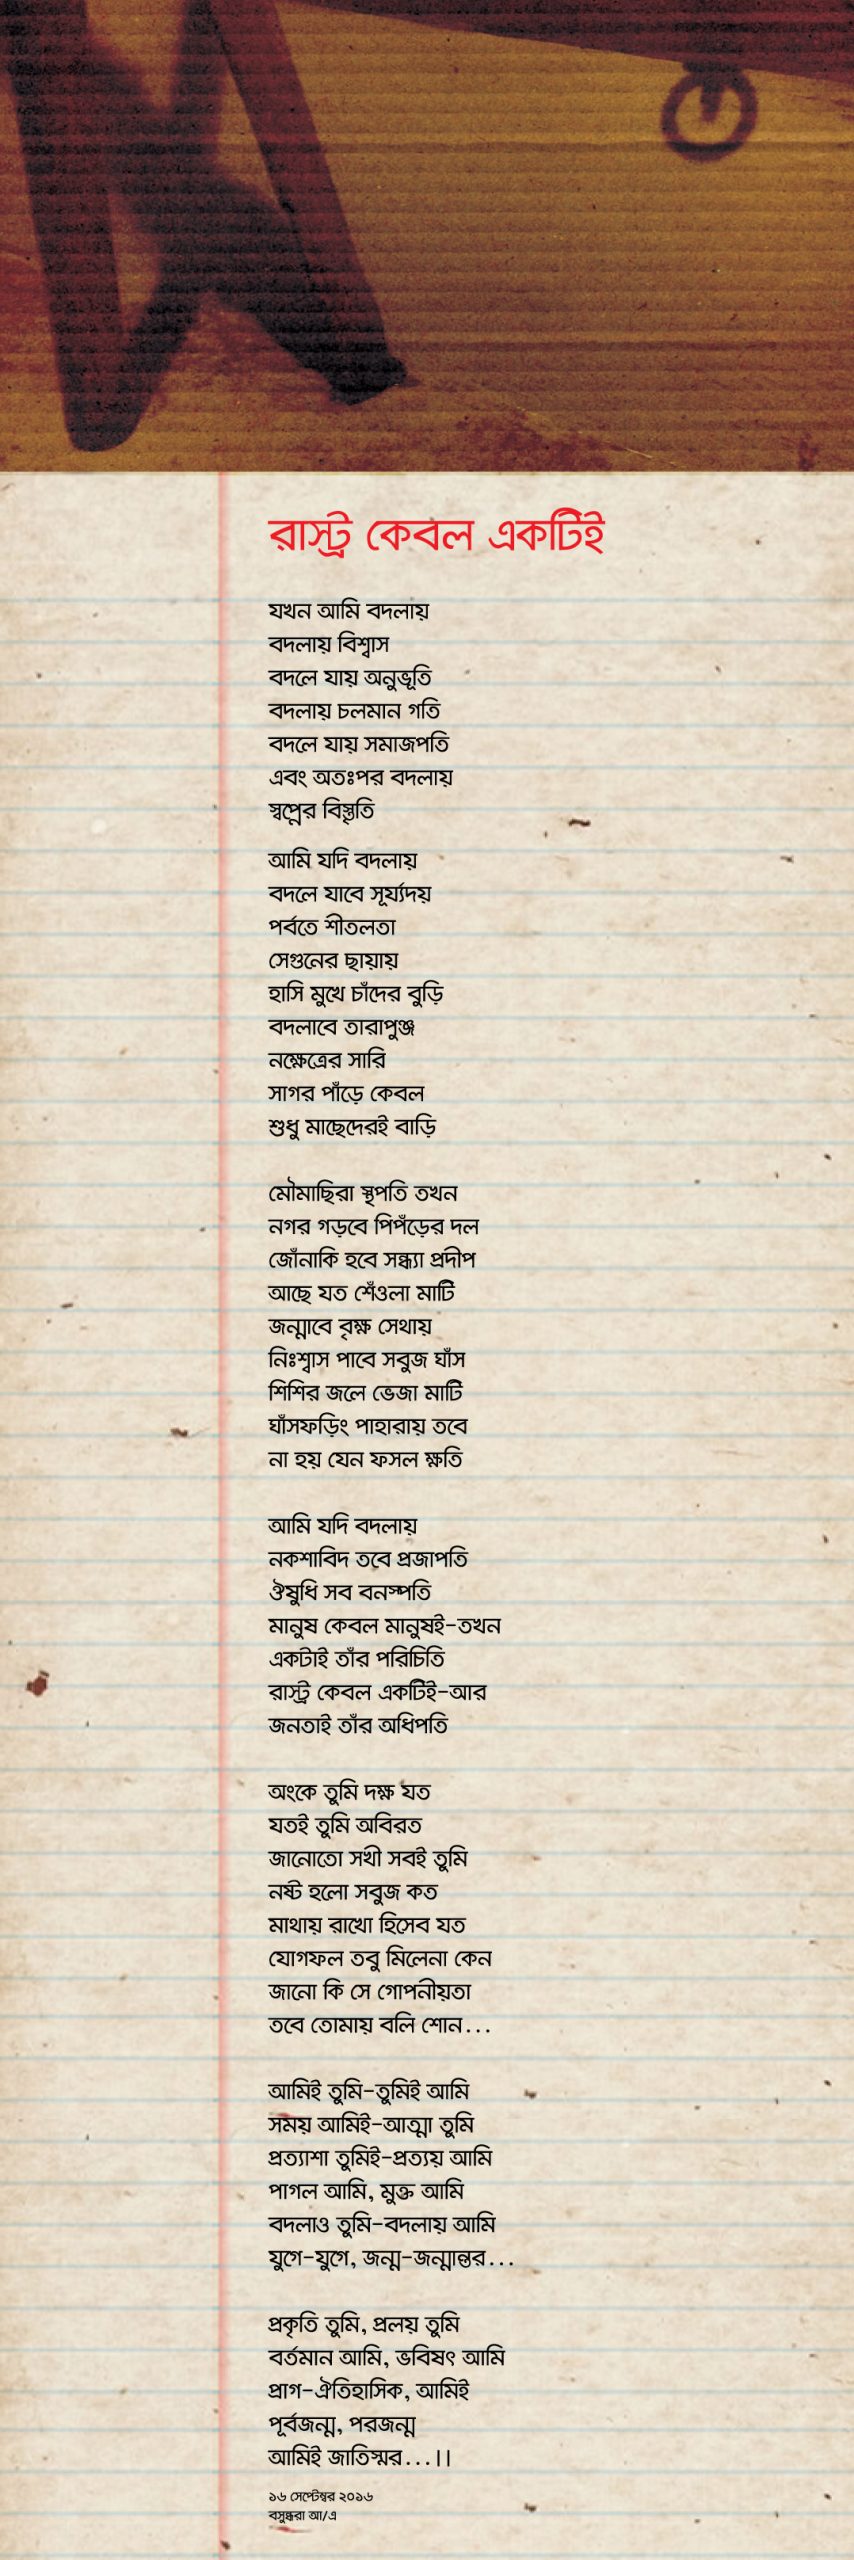 রাস্ট্র কেবল একটিই
যখন আমি বদলায়
বদলায় বিশ্বাস
বদলে যায় অনুভূতি
বদলায় চলমান গতি
বদলে যায় সমাজপতি
এবং অতঃপর বদলায়
স্বপ্নের বিস্তৃতি
আমি যদি বদলায়
বদলে যাবে সূর্য্যদয়
পর্বতে শীতলতা
সেগুনের ছায়ায়
হাসি মুখে চাঁদের বুড়ি
বদলাবে তারাপুঞ্জ
নক্ষেত্রের সারি
সাগর পাঁড়ে কেবল
শুধু মাছেদেরই বাড়ি
মৌমাছিরা স্থপতি তখন
নগর গড়বে পিপঁড়ের দল
জোঁনাকি হবে সন্ধ্যা প্রদীপ
আছে যত শেঁওলা মাটি
জন্মাবে বৃক্ষ সেথায়
নিঃশ্বাস পাবে সবুজ ঘাঁস
শিশির জলে ভেজা মাটি
ঘাঁসফড়িং পাহারায় তবে
না হয় যেন ফসল ক্ষতি
আমি যদি বদলায়
নকশাবিদ তবে প্রজাপতি
ঔষুধি সব বনস্পতি
মানুষ কেবল মানুষই-তখন
একটাই তাঁর পরিচিতি
রাস্ট্র কেবল একটিই-আর
জনতাই তাঁর অধিপতি
অংকে তুমি দক্ষ যত
যতই তুমি অবিরত
জানোতো সখী সবই তুমি
নষ্ট হলো সবুজ কত
মাথায় রাখো হিসেব যত
যোগফল তবু মিলেনা কেন
জানো কি সে গোপনীয়তা
তবে তোমায় বলি শোন...
আমিই তুমি-তুমিই আমি
সময় আমিই-আত্মা তুমি
প্রত্যাশা তুমিই-প্রত্যয় আমি
পাগল আমি, মুক্ত আমি
বদলাও তুমি-বদলায় আমি
যুগে-যুগে, জন্ম-জন্মান্তর...
প্রকৃতি তুমি, প্রলয় তুমি
বর্তমান আমি, ভবিষৎ আমি
প্রাগ-ঐতিহাসিক, আমিই
পূর্বজন্ম, পরজন্ম
আমিই জাতিস্মর...।।
১৬ সেপ্টেম্বর ২০১৬
বসুন্ধরা আ/এ